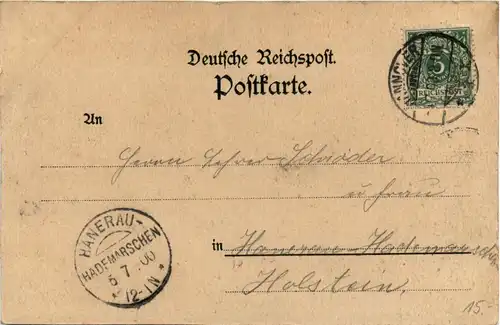 Deutsche Reichspost.
Postkarte.
5
REICHSPOST
An
Herrn Lehrer Schröder
u. Frau
in Hanerau-Hademarschen
Holstein.
HANERAU-
HADEMARSCHEN
6 7 00
* 12-1N *
15.-